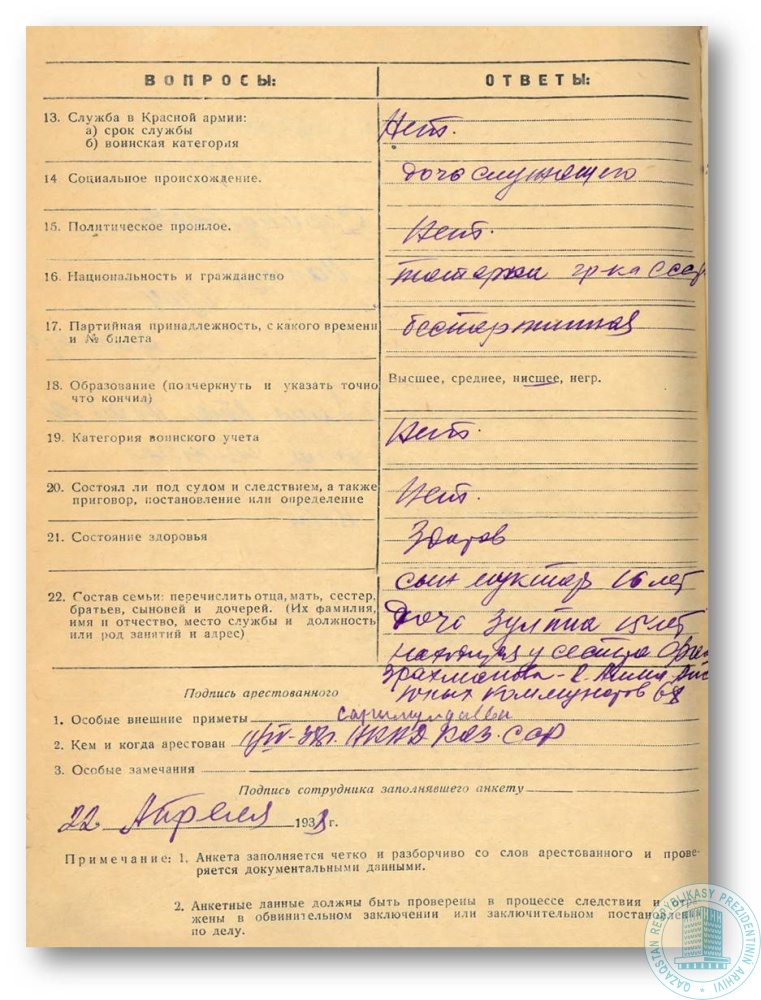 ВОПРОСЫ: ОТВЕТЫ:
13. Служба в Красной армии: Нет.
а) срок службы
б) воинская категория
14 Социальное происхождение. дочь служащего
15. Политическое прошлое. Нет.
16. Национальность и гражданство татарка гр-ка СССР
17. Партийная принадлежность, с какого времени беспартийная
и № билета
18. Образование (подчеркнуть и указать точно Высшее, среднее, нисшее, негр.
что кончил)
19. Категория воинского учета Нет.
20. Состоял ли под судом и следствием, а также
приговор, постановление или определение Нет.
21. Состояние здоровья Здоров
сын Муктар 16 лет
22. Состав семьи: перечислить отца, мать, сестер,
братьев, сыновей и дочерей. (Их фамилия, дочь 15 лет
имя и отчество, место службы и должность
или род занятий и адрес) у сестры
Подпись арестованного юных коммунаров 68
1. Особые внешние приметы
2. Кем и когда арестован НКВД Каз. ССР
3. Особые замечания
Подпись сотрудника заполнявшего анкету
22 Апреля 1938 г.
Примечание: 1. Анкета заполняется четко и разборчиво со слов арестованного и прове-
ряется документальными данными.
2. Анкетные данные должны быть проверены в процессе следствия и отра-
жены в обвинительном заключении или заключительном постановлении
по делу.
QAZAQSTAN RESPÝBLIKASY PREZIDENTINIŃ ARHIVI